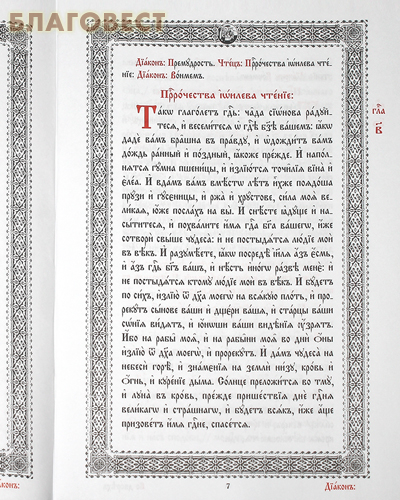 БЛАГОВЕСТ
Дїа́конъ: Премꙋ́дрость. Чте́цъ: Прⷪ҇ро́чества і҆ѡи́лева чте́-
нїе: Дїа́конъ: Во́нмемъ.
Прⷪ҇ро́чества і҆ѡи́лева чте́нїе:
Та́кѡ глаго́летъ гдⷭ҇ь: ча̑да сїѡ̑нова ра́дꙋй-
теся, и҆ весели́теся ѡ҆ гдⷭ҇ѣ бз҃ѣ ва́шемъ: ꙗ҆́кѡ
дадѐ ва́мъ бра̑шна въ пра́вдꙋ, и҆ ѡ҆дожди́тъ ва́мъ
до́ждь ра́нный и҆ по́здный, ꙗ҆́коже пре́жде. И҆ напо́л-
нятся гꙋ́мна пшени́цы, и҆ и҆злїю́тся точи̑лїя вїна̀ и҆
є҆ле́а. И҆ вда́мъ ва́мъ вмѣ́стѡ лѣ́тъ и҆́хже поядо́ша
прꙋ́зи и҆ гꙋ́сеницы, и҆ ржа̀ и҆ хрꙋ́стове, си́ла моя̀ ве-
ли́кая, ю҆́же посла́хъ на вы̀. И҆ снѣ́сте ꙗ҆дꙋ́ще и҆ на-
сы́титеся, и҆ похва́лите и҆́мя гдⷭ҇а бг҃а ва́шегѡ, и҆́же
сотворѝ свы́ше чꙋдеса̀: и҆ не постыдя́тся лю́дїе моѝ
въ вѣ́къ. И҆ разꙋмѣ́ете, ꙗ҆́кѡ посредѣ̀ і҆и҃ля а҆́зъ є҆́смь,
и҆ а҆́зъ гдⷭ҇ь бг҃ъ ва́шъ, и҆ нѣ́сть и҆но́гѡ ра́звѣ менє̀: и҆ не
постыдя́тся ктомꙋ̀ лю́дїе моѝ въ вѣ́къ. И҆ бꙋ́детъ
по си́хъ, и҆злїю̀ ѿ дх҃а моегѡ̀ на вся́кꙋю пло́ть, и҆ про-
рекꙋ́тъ сы́нове ва́ши и҆ дщє́ри ва́шя, и҆ ста́рцы ва́ши
сѡ́нїя ви́дятъ, и҆ ю҆́нѡши ва́ши видѣ̑нїя ᲂу҆́зрятъ.
И҆́бо на рабы̑ моя̑, и҆ на рабы̑ни моя̑ во дни̑ ѻ҆́ны
и҆злїю̀ ѿ дх҃а моегѡ̀, и҆ прорекꙋ́тъ. И҆ да́мъ чꙋдеса̀ на
небесѝ горѣ̀, и҆ зна́мєнїя на землѝ ни́зꙋ, кро́вь и҆
ѻ҆́гнь, и҆ кꙋре́нїе ды́ма. Со́лнце преложи́тся во тмꙋ̀,
и҆ лꙋна̀ въ кро́вь, пре́жде прише́ствїя днѐ гдⷭ҇ня
вели́кагѡ и҆ стра́шнагѡ, и҆ бꙋ́детъ вся́къ, и҆́же а҆́ще
призове́тъ и҆́мя гдⷭ҇не, спасе́тся.
гла́
в҃
7
о́нъ:
Дїа́конъ: